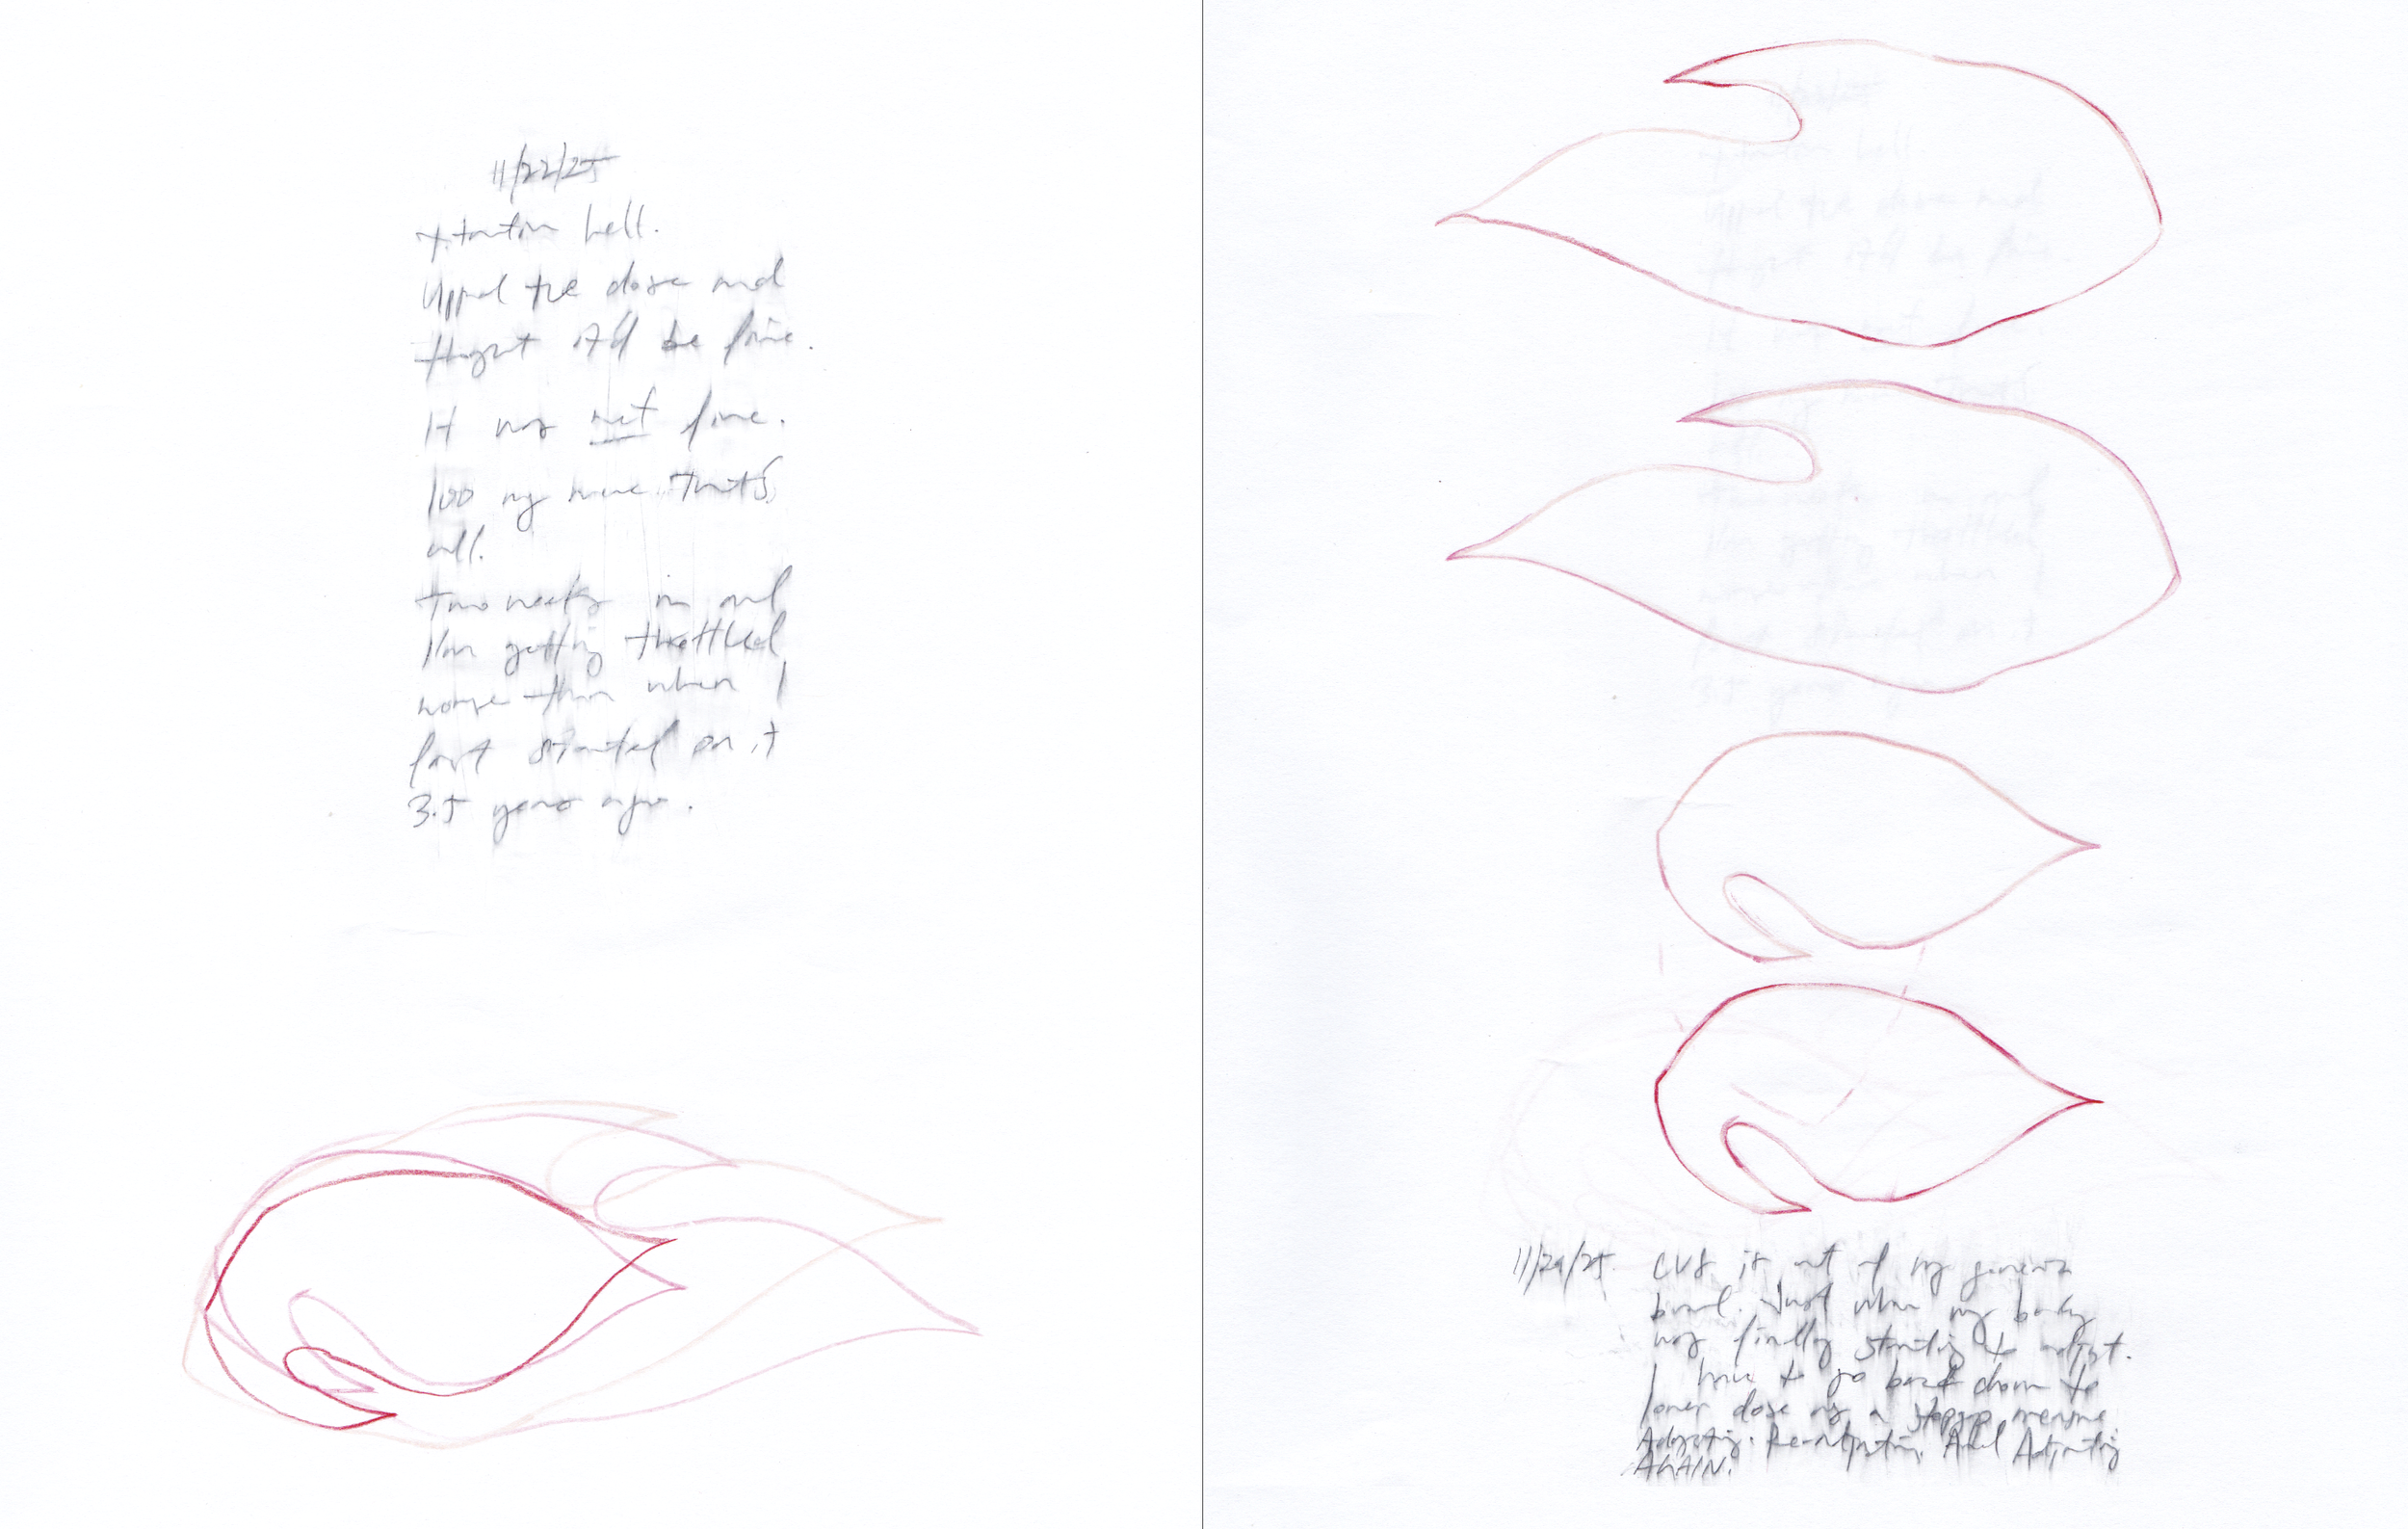 11/22/25
Titration hell.
Upped the dose and
thought it'd be fine.
It was not fine.
100 mg more. That's
all.
Two weeks in and
I'm getting throttled
worse than when I
first started on it
3.5 years ago.
11/29/25. CVS is out of my generic
brand. Just when my body
was finally starting to adjust.
I have to go back down to
lower dose as a stopgap measure.
Adjusting. Re-adjusting. And Adjusting
AGAIN.